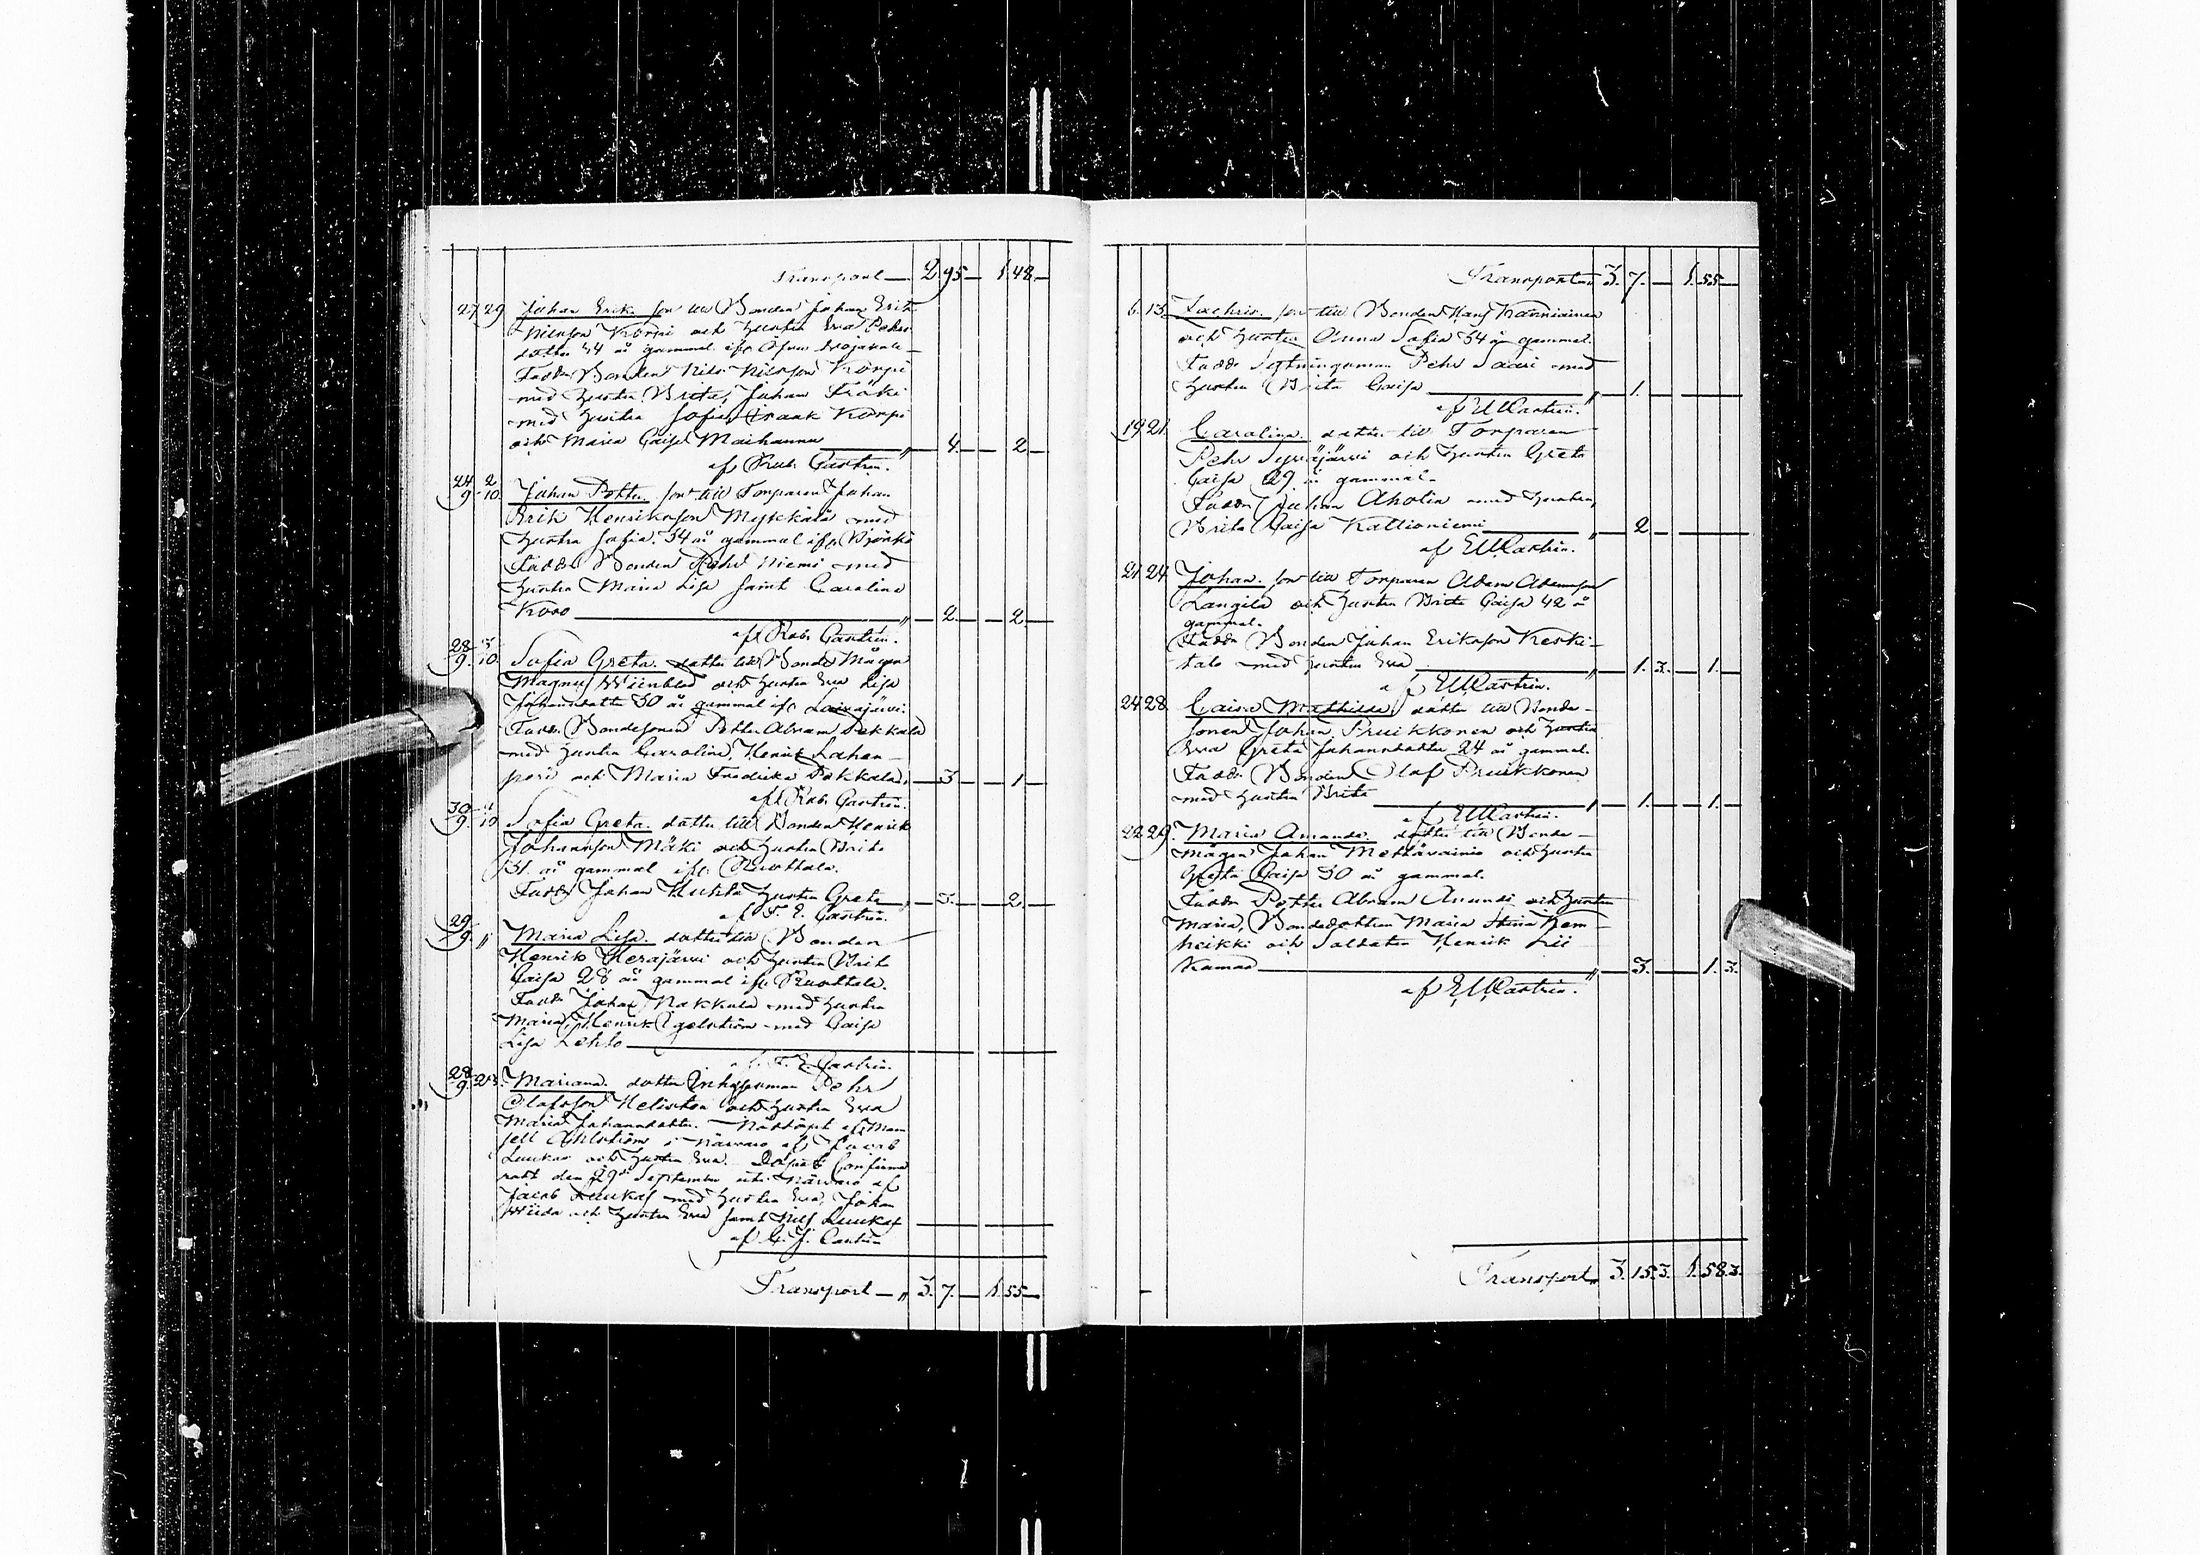 Transport — 2. 95 — 1. 48 —
27 29 Johan Erik. son till Bonden Johan Erik
Nilsson Korpi och hustru Eva Pehrs
dotter 44 år gammal ifr. Öfver
Faddr. Bonden Nils Nilsson Korpi
med hustru Brita, Johan
med hustru Sofia, Isaak Korpi
och Maria Caisa Maihannu — " — 4. — 2 —
af Rub. Castrén.
24/9 2/10 Johan Petter. son till Torparen Johan
Erik Henriksson Mykkälä med
hustru Sofia. 34 år gammal ifr. Björkö
Faddr. Bonden Pehr Niemi med
hustru Maria Lisa samt Carolina
Kovo — " — 2. — 2. —
af Rob. Castrén.
28/9 3/10 Sofia Greta. dotter till Bonde Mågen
Magnus Wiinblad och hustru Eva Lisa
Johansdotter 30 år gammal ifr. Lainajärvi.
Faddr. Bondesonen Petter Abram Pekkala
med hustru Carolina, Henrik Lahen-
perä och Maria Fredrika Pekkala. — 3 — 1 —
af Rob. Castrén.
30/9 4/10 Sofia Greta. dotter till Bonden Henrik
Johansson Mäki och hustru Brita
31. år gammal ifr. Ruottala.
Faddr. Johan Huhta hustru Greta — " — 3. — 2. —
af F. E. Castrén.
29/9 " Maria Lisa. dotter till Bonden
Henrik Herajärvi och hustru Brita
Caisa 28 år gammal ifr. Ruottala.
Faddr. Johan Nakkula med hustru
Maria, Henrik Egelström med Caisa
Lisa Lehto —
af F. E. Castrén.
28/9 Mariana. dotter Inhysesman Pehr
Olofsson Helistön och hustru Eva
Maria Johansdotter. Nöddöpt af Mam
sell Ahlström i närvaro af Jacob
Luukas och hustru Eva. Döpet Confirme
radt den 29de September uti närvaro af
Jacob Luukas med hustru Eva, Johan
Wiida och hustru Eva samt Nils Luukas
af G. J. Castrén
Transport — " 3. 7. — 1. 55 —
Transport " 3. 7. — 1. 55 —
6. 13. Zachris. son till Bonden Hans Kanniainen
och hustru Anna Sofia 34 år gammal.
Faddr. Sytningsman Pehr Saari med
hustru Brita Caisa — " — 1. —
af E W Castrén.
19 21. Carolina. dotter till Torparen
Pehr Syväjärvi och hustru Greta
Caisa 29 år gammal.
Faddr. Johan Ahola med hustru,
Brita Caisa Kallioniemi — " — 2 —
af E W Castrén.
21 24 Johan. son till Torparen Adam Adamsson
Langila och hustru Brita Caisa 42 år
gammal.
Faddr. Bonden Johan Eriksson Keski-
talo med hustru Eva — " — 1. 3. — 1. —
af E W Castrén.
24 28 Caisa Mathilda. dotter till Bonde-
sonen Johan Pruikkonen och hustru
Eva Greta Johansdotter 24 år gammal.
Faddr. Bonden Olof Pruikkonen
med hustru Brita — " — 1. — 1. —
af E W Castrén.
22 29. Maria Amanda. dotter till Bonde-
mågen Johan Mettävainio och hustru
Greta Caisa 30 år gammal.
Faddr. Petter Abram Anundi och hustru
Maria, Bondedottren Maria Stina Kem-
heikki och Soldaten Henrik Lii
kamaa — " — 3. — 1. 3.
af E W Castrén.
Transport " 3. 15. 3. 1. 58. 3.